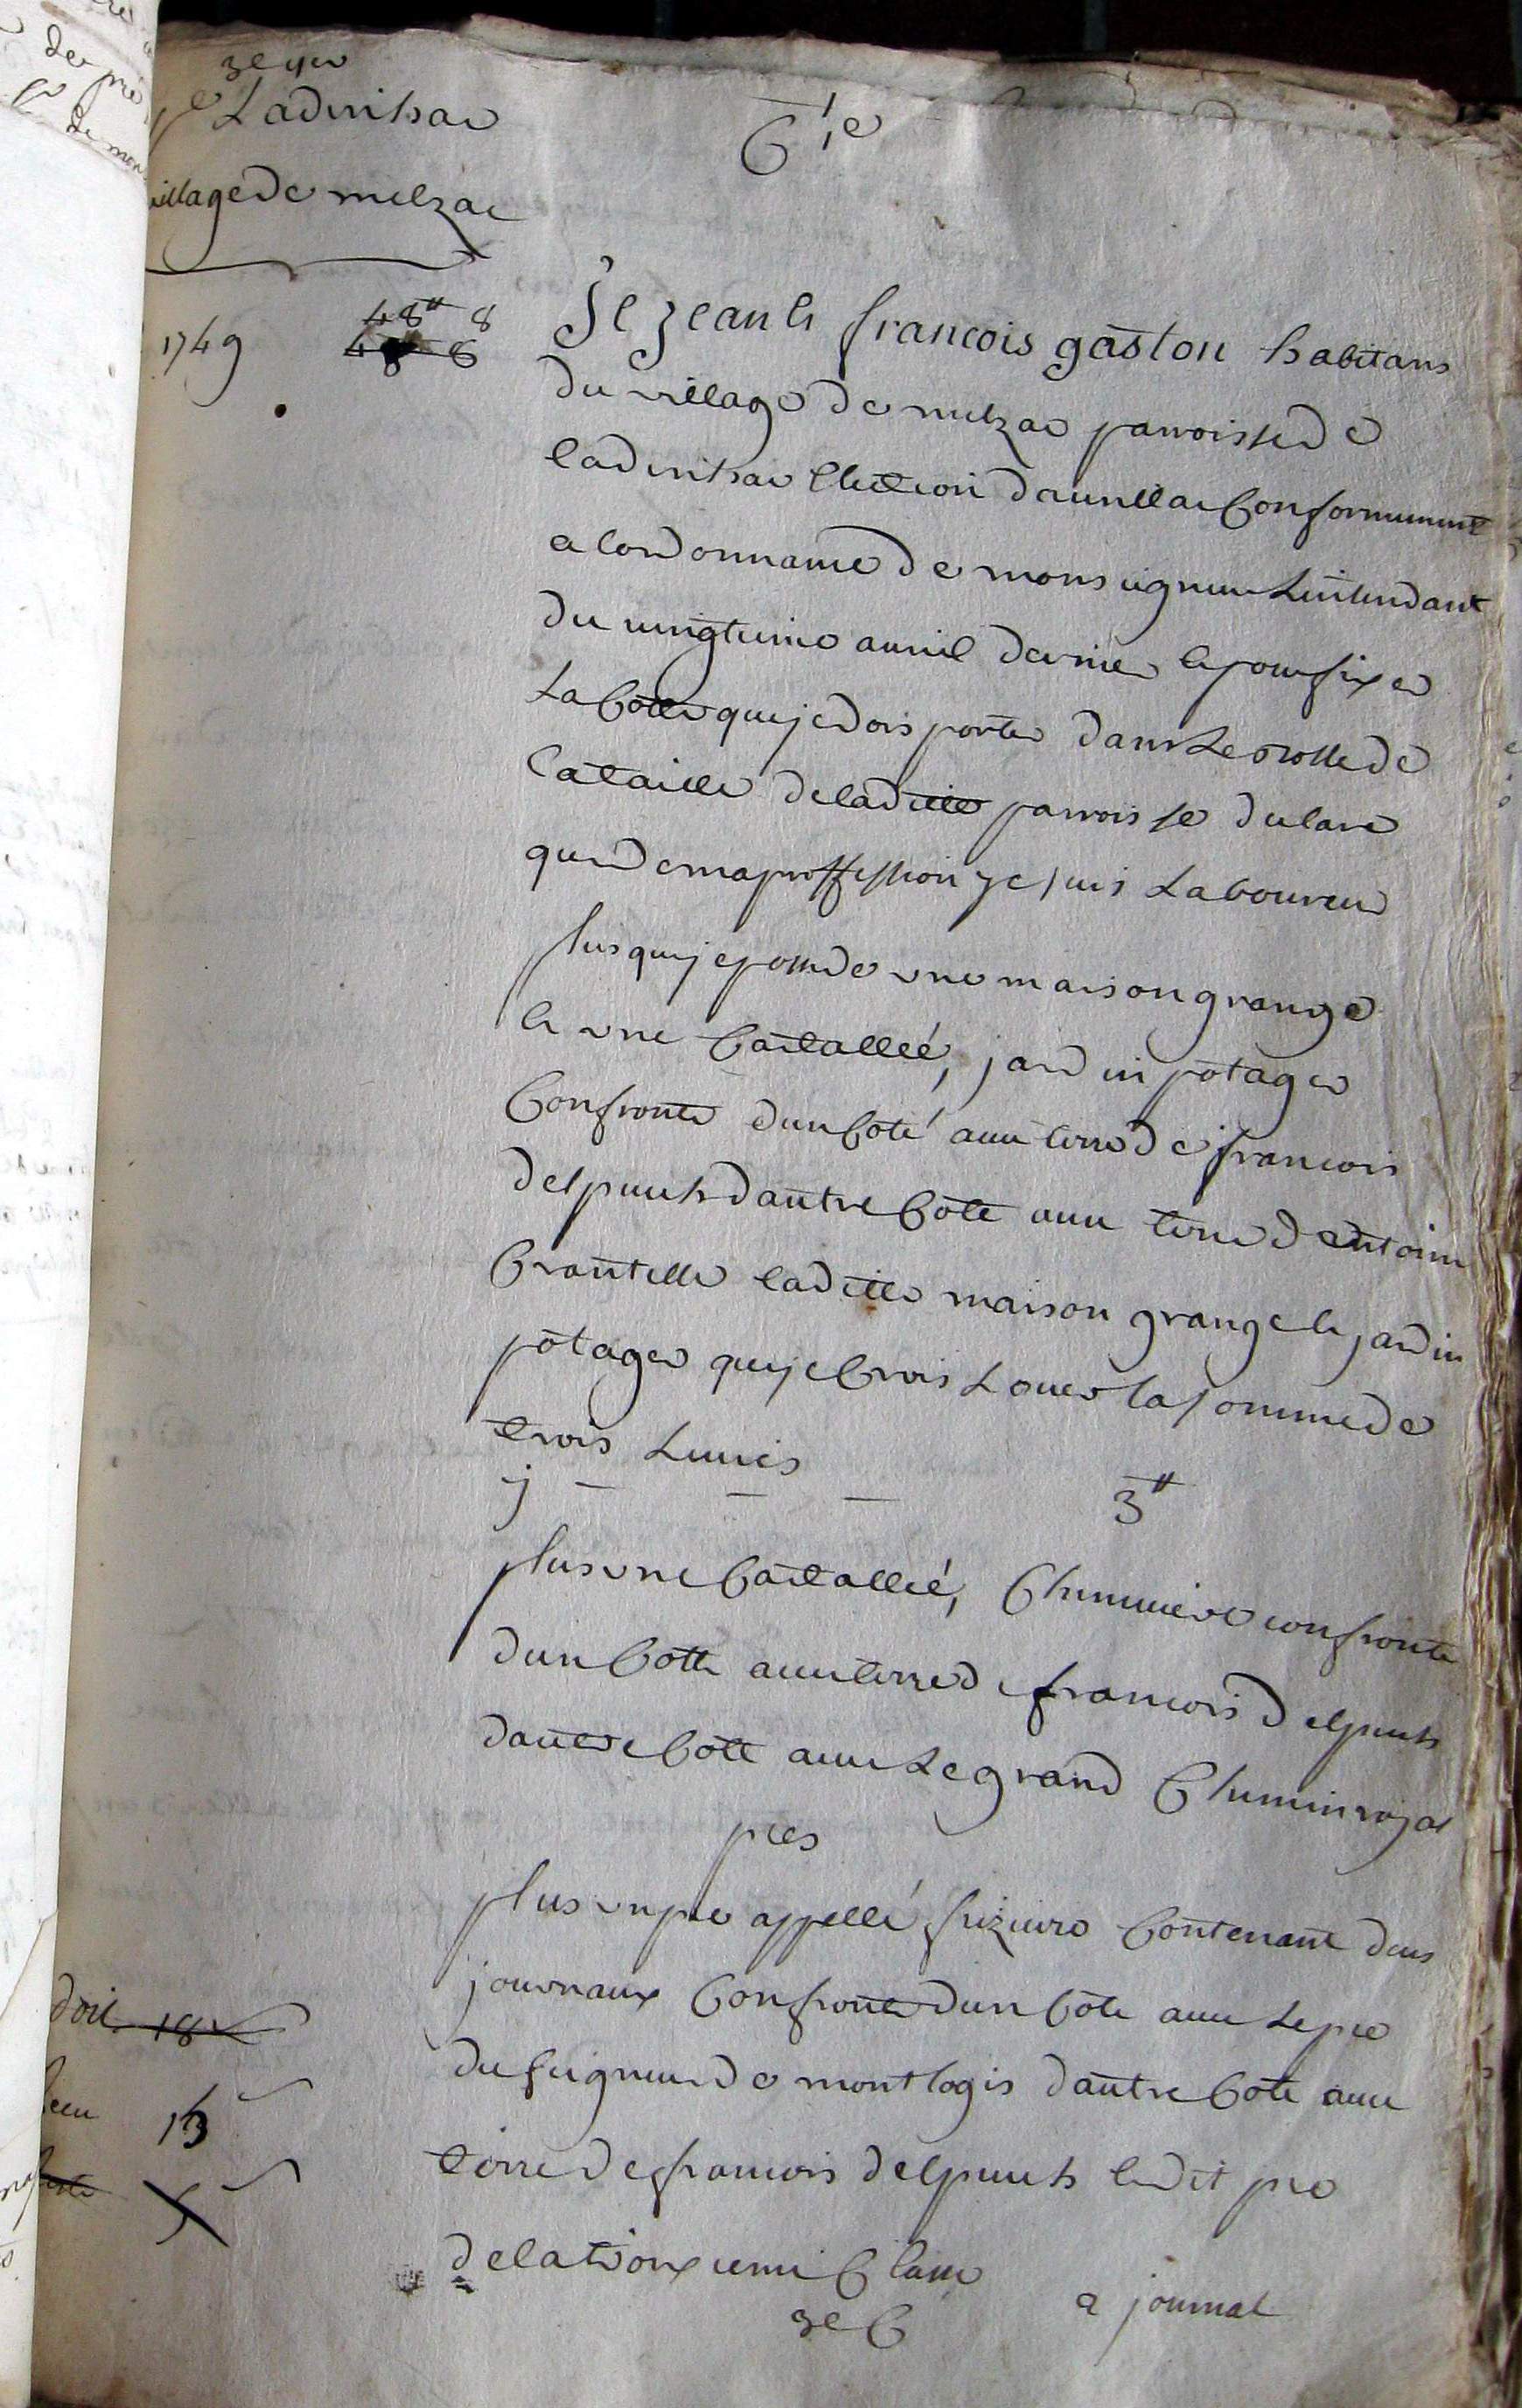 Ladinhac
6 ie
village de melzac
1749 48# 8
Je jean & francois gaston habitans
du village de melzac parroisse de
ladinhac Election daurillac Conformement
a lordonnance de monseigneur Lintendant
du vingtieme auril dernier & pour fixer
La Cotte que je dois porter dans Le rolle de
la taille de laditte parroisse declare
que de ma proffession je suis Laboureur
plus que je possede une maison grange
& une Bastallée, jardin potager
Confronte dun Coté auec terre de francois
delpuechs dautre Coté auec terre dentoine
Brantelle laditte maison grange & jardin
potager que je Crois Louer la somme de
trois Liures
3#
plus une Bastallée, Cheneuiere confronte
dun Cotte auec terre de francois delpuechs
dautre Cotte auec Le grand Chemin royal
pres
plus un pre appellé contenant deux
journaux Confronte dun Cote auec Le pre
du seigneur de montlogis dautre Cote auec
terre de francois delpuechs ledit pre
doit 18
13
5
de la troixieme Classe
3e C 2 journal